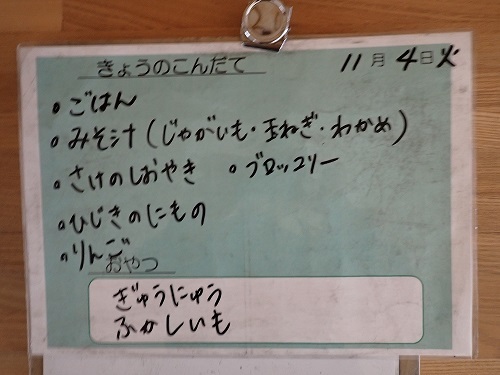 きょうのこんだて 11月4日火
・ごはん
・みそ汁(じゃがいも・玉ねぎ・わかめ)
・さけのしおやき ・ブロッコリー
・ひじきのにもの
・りんご
おやつ
ぎゅうにゅう
ふかしいも